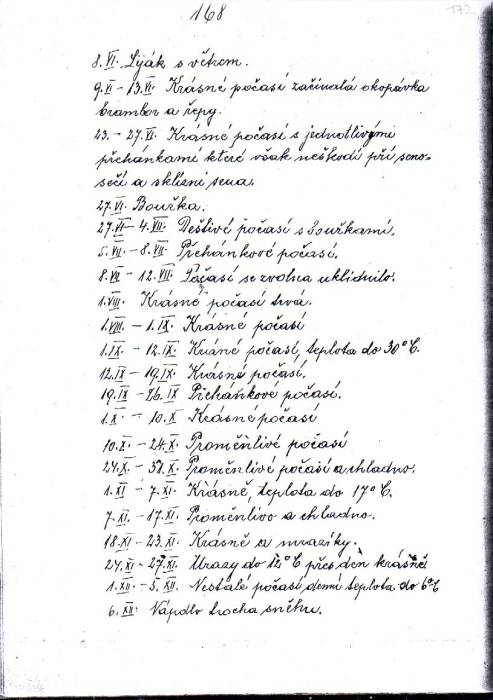 168
172
8.VI. Liják s větrem.
9.VI – 13.VI. Krásné počasí začínalá okopávka
brambor a řepy.
23. – 27.VI. Krásné počasí s jednotlivými
přeháňkami které však neškodí při seno-
seči a sklízni sena.
27.VI. Bouřka.
27.VI – 4.VII. Deštivé počasí s bouřkami.
5.VII – 8.VII. Přeháňkové počasí.
8.VII – 12.VII. Počasí se zvolna uklidnilo.
1.VIII. Krásné počasí trvá.
1.VIII. – 1.IX. Krásné počasí
1.IX. – 12.IX. Krásné počasí, teplota do 30°C.
12.IX – 19.IX. Krásné počasí.
19.IX – 26.IX Přeháňkové počasí.
1.X. – 10.X Krásné počasí
10.X. – 24.X. Proměnlivé počasí
24.X. – 31.X. Proměnlivé počasí a chladno.
1.XI – 7.XI. Krásně, teplota do 17°C.
7.XI. – 17.XI. Proměnlivo a chladno.
18.XI – 23.XI. Krásně a mrazíky.
24.XI. – 27.XI. Mrazy do 12°C přes den krásně
1.XII. – 5.XII. Nestálé počasí denní teplota do 6°C
6.XII. Napdlo trocha sněhu.